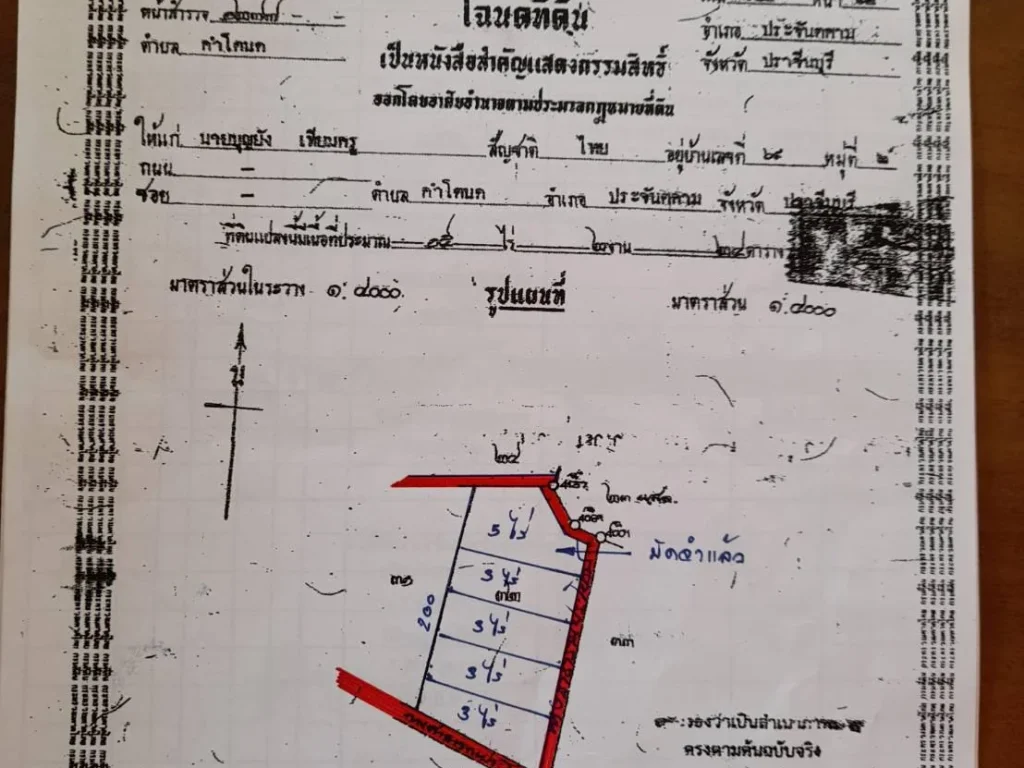 โฉนดที่ดิน
หน้าสำรวจ
อำเภอ ประจันตคาม
ตำบล คำโตนด
เป็นหนังสือสำคัญแสดงกรรมสิทธิ์
จังหวัด ปราจีนบุรี
ออกโดยอาศัยอำนาจตามประมวลกฎหมายที่ดิน
ให้แก่ นายบุญยัง เทียมครู สัญชาติ ไทย อยู่บ้านเลขที่ ๒๙ หมู่ที่ ๒
ถนน -
ซอย - ตำบล คำโตนด อำเภอ ประจันตคาม จังหวัด ปราจีนบุรี
ที่ดินแปลงนี้มีเนื้อที่ประมาณ ๑๕ ไร่ ๒ งาน ๒๔ ตาราง
มาตราส่วนในระวาง ๑:๔๐๐๐ รูปแผนที่ มาตราส่วน ๑:๔๐๐๐
น
๒๔
3 ไร่
มัดจำแล้ว
3 ไร่
๓๑
200
3 ไร่
๓๓
3 ไร่
3 ไร่
รับรองว่าเป็นสำเนาภาพ
ตรงตามต้นฉบับจริง